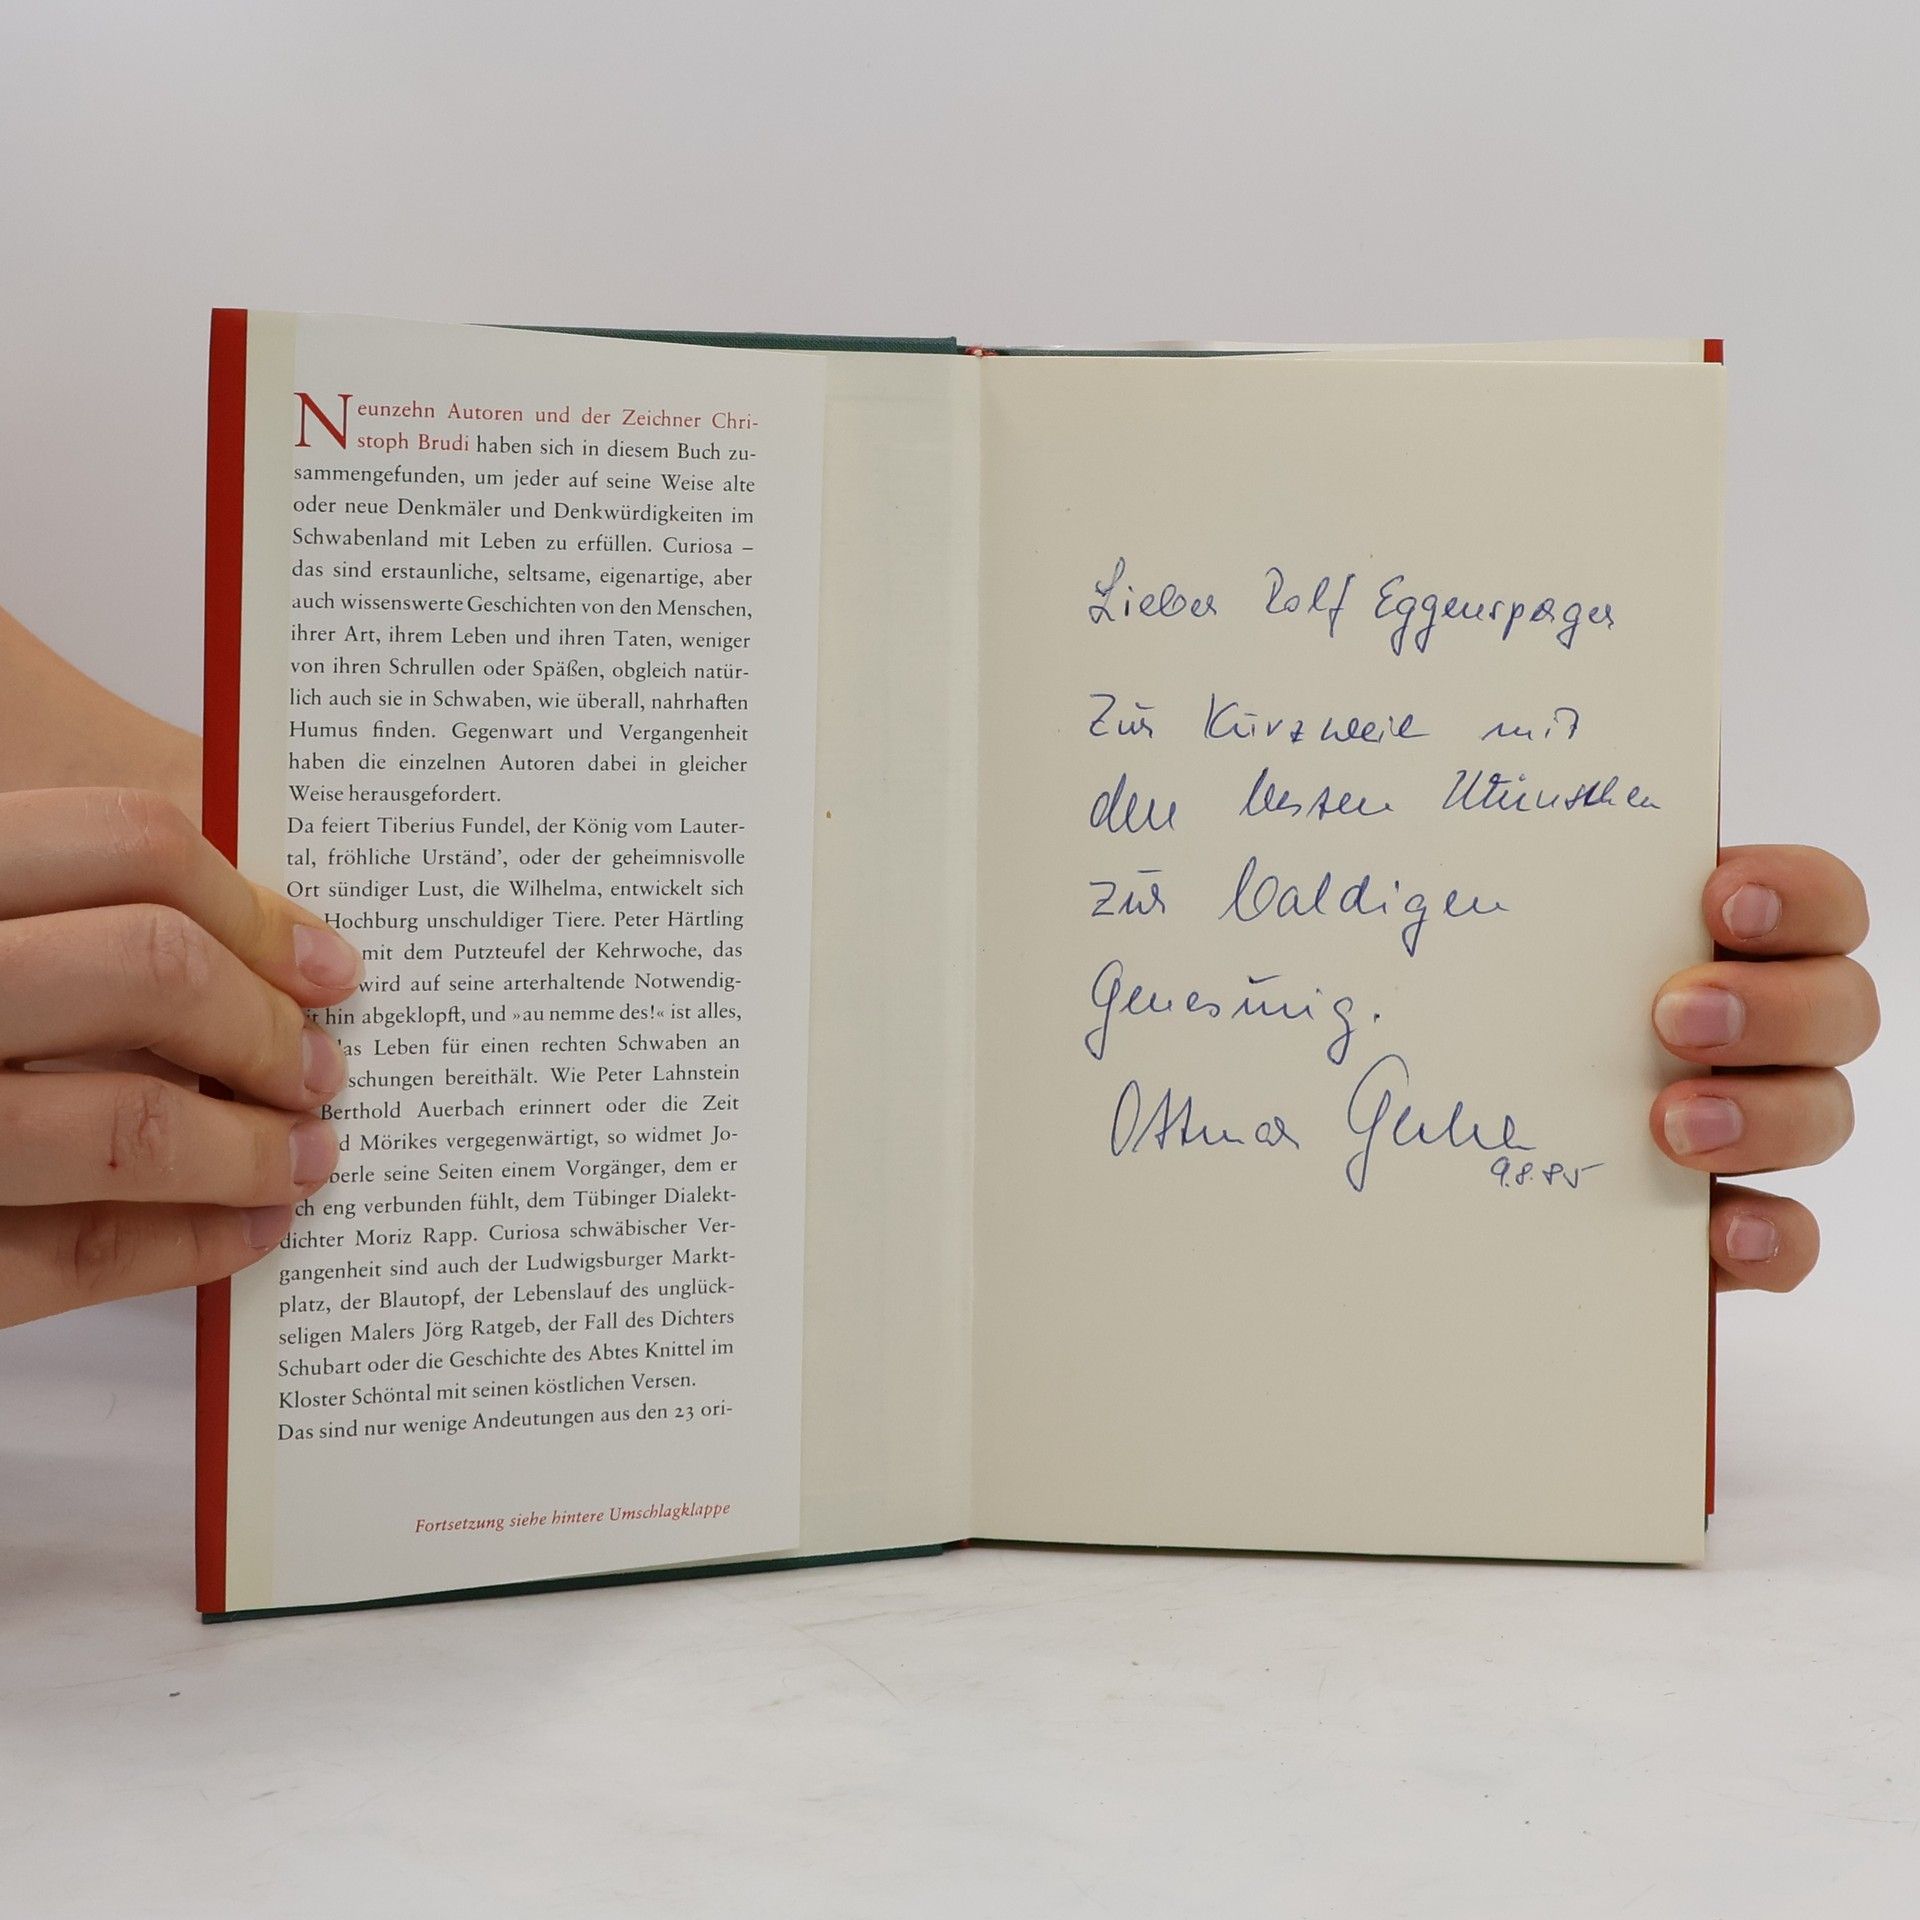 Neunzehn Autoren und der Zeichner Chri-
stoph Brudi haben sich in diesem Buch zu-
sammengefunden, um jeder auf seine Weise alte
oder neue Denkmäler und Denkwürdigkeiten im
Schwabenland mit Leben zu erfüllen. Curiosa –
das sind erstaunliche, seltsame, eigenartige, aber
auch wissenswerte Geschichten von den Menschen,
ihrer Art, ihrem Leben und ihren Taten, weniger
von ihren Schrullen oder Späßen, obgleich natür-
lich auch sie in Schwaben, wie überall, nahrhaften
Humus finden. Gegenwart und Vergangenheit
haben die einzelnen Autoren dabei in gleicher
Weise herausgefordert.
Da feiert Tiberius Fundel, der König vom Lauter-
tal, fröhliche Urständ’, oder der geheimnisvolle
Ort sündiger Lust, die Wilhelma, entwickelt sich
Hochburg unschuldiger Tiere. Peter Härtling
mit dem Putzteufel der Kehrwoche, das
wird auf seine arterhaltende Notwendig-
it hin abgeklopft, und »au nemme des!« ist alles,
das Leben für einen rechten Schwaben an
schungen bereithält. Wie Peter Lahnstein
Berthold Auerbach erinnert oder die Zeit
d Mörikes vergegenwärtigt, so widmet Jo-
berle seine Seiten einem Vorgänger, dem er
ch eng verbunden fühlt, dem Tübinger Dialekt-
dichter Moriz Rapp. Curiosa schwäbischer Ver-
gangenheit sind auch der Ludwigsburger Markt-
platz, der Blautopf, der Lebenslauf des unglück-
seligen Malers Jörg Ratgeb, der Fall des Dichters
Schubart oder die Geschichte des Abtes Knittel im
Kloster Schöntal mit seinen köstlichen Versen.
Das sind nur wenige Andeutungen aus den 23 ori-
Fortsetzung siehe hintere Umschlagklappe
Lieber Rolf Eggensperger
Zur Kurzweil mit
den besten Wünschen
zur baldigen
Genesung.
Ottmar
9.8.85